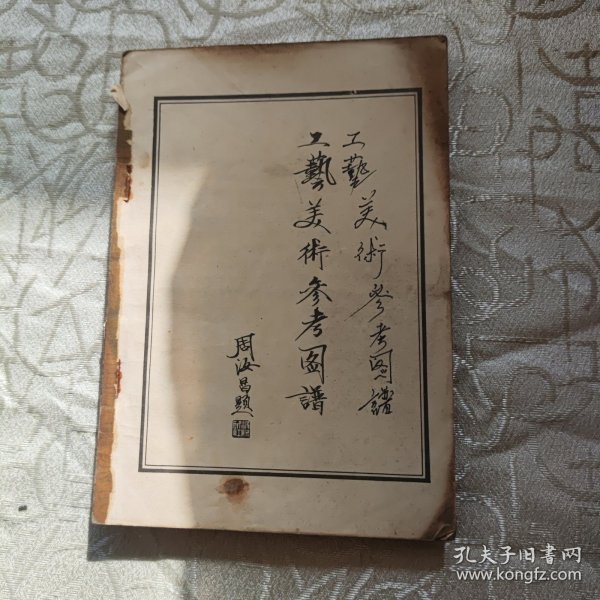 工藝美術參考圖譜
工藝美術參考圖譜
周汝昌題
孔夫子旧书网
www.kongfz.com